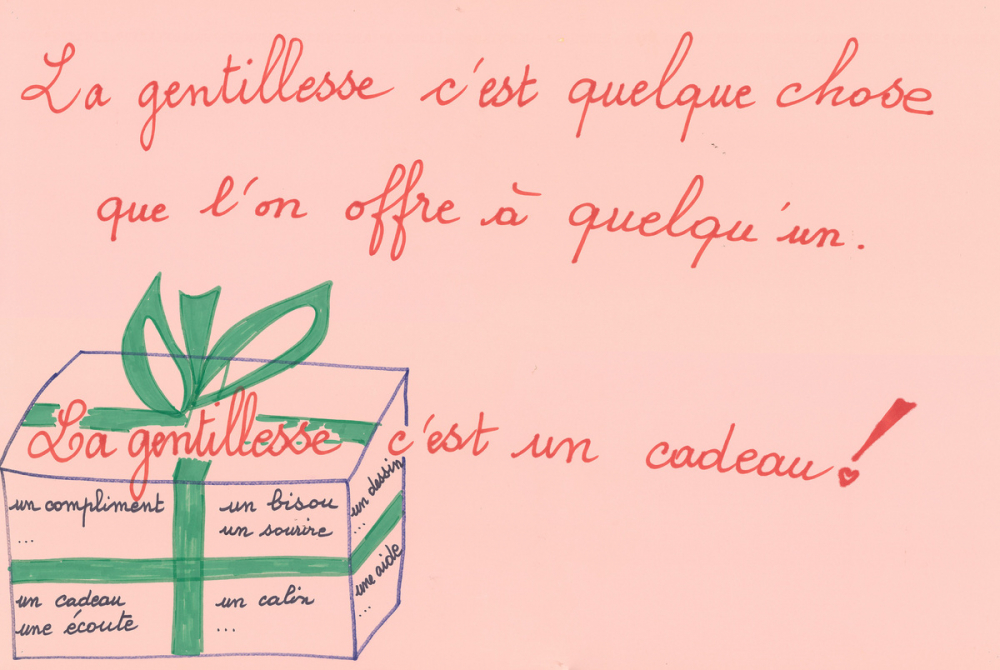 La gentillesse c'est quelque chose
que l'on offre à quelqu'un.
La gentillesse c'est un cadeau !
un compliment
...
un bisou
un sourire
un dessin
...
un cadeau
une écoute
un calin
...
une aide
...